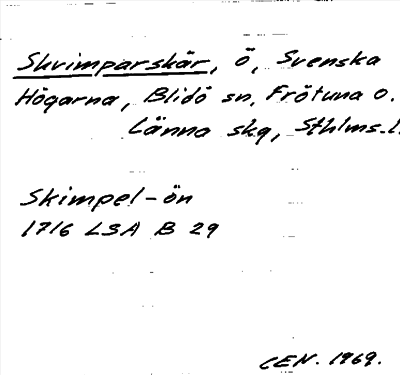 Skrimparskär, ö, Svenska
Högarna, Blidö sn, Frötuna o.
Länna skg, Sthlms. l.
Skimpel-ön
1716 LSA B 29
CEN. 1969.